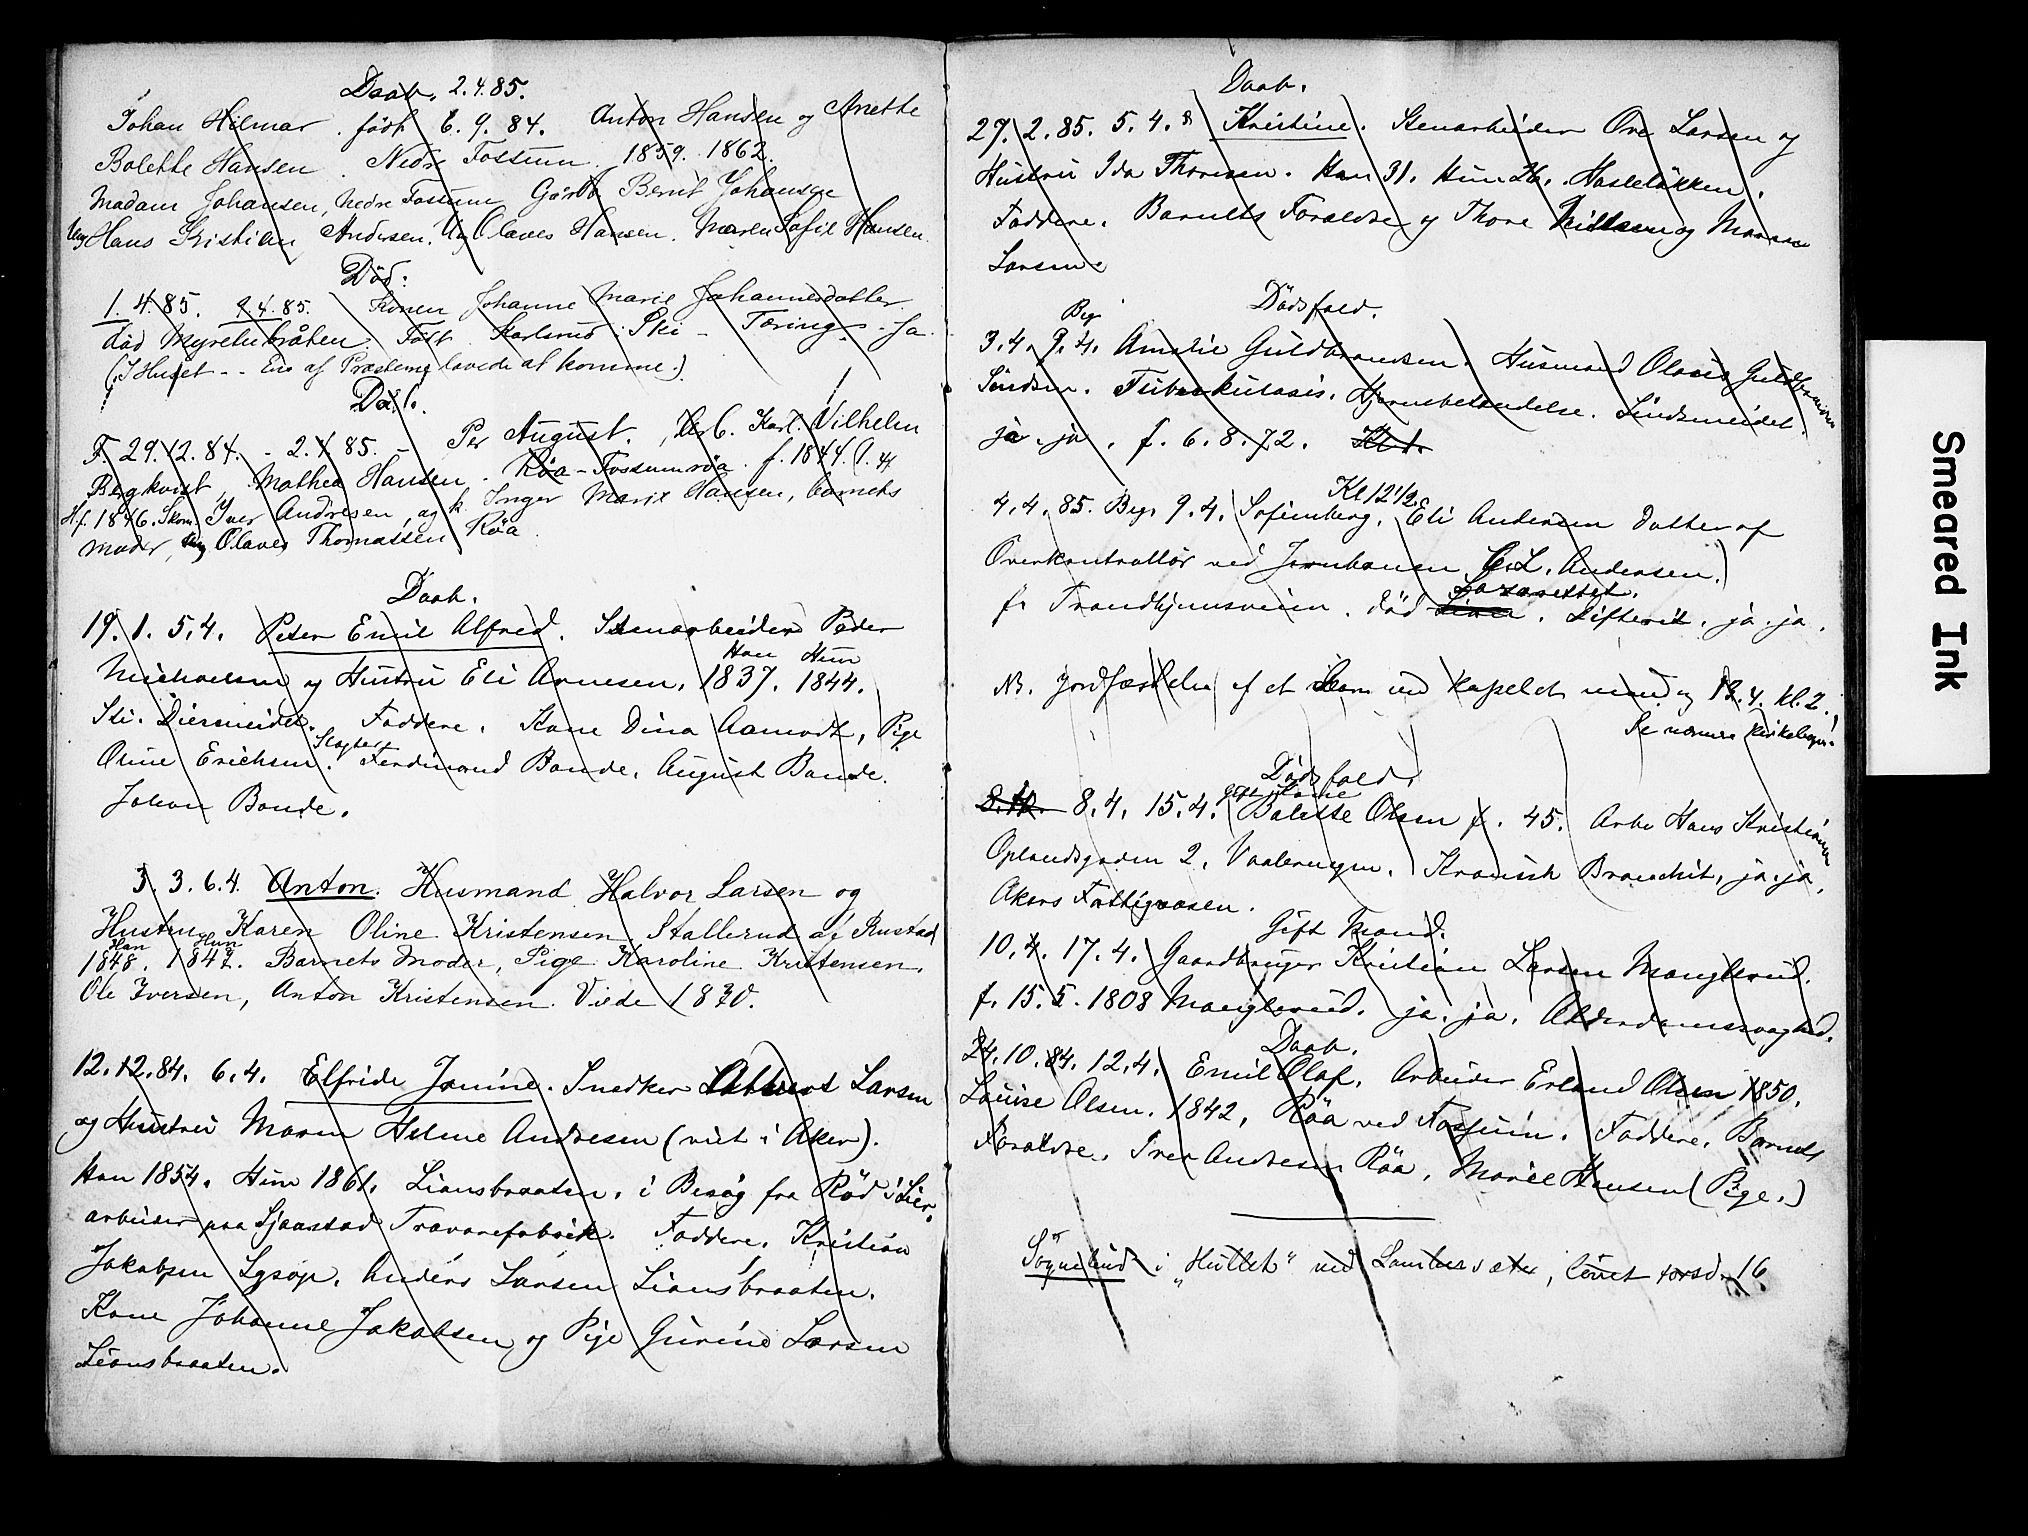 Daab. 2.4.85.
Johan Hilmar. født 6.9.84. Anton Hansen og Anette
Bolette Hansen. Nedre Fossum. 1859. 1862.
Madam Johansen, Nedre Fossum Gårdb Bernt Johansen
Ung Hans Kristian Andersen. Ung Olaves Hansen. Maren Sofie Hansen.
Död:
1.4.85. 9.4.85. Konen Johanne Marie Johannesdatter
död Myrerbråten. Født Karlsrud i Ski - Tæring - Ja.
(I Huset -- En af Præsterne lovede at komme.)
Daab.
F. 29.12.84. - 2.4.85. - Per August. Karl Vilhelm
Bergkvist, Mathea Hansen. Röa - Fossumröa. f. 1844.
H f. 1846. Iver Andresen, og k. Inger Marie Hansen, barnets
moder, Ung Olaves Thomassen Röa.
Daab.
19.1. 5.4. Peter Emil Alfred. Stenarbeider Peder
Han Hun
Michaelsen og Hustru Eli Arnesen. 1837. 1844.
Diesmeidet. Faddere. Kone Dina Aamodt, Pige
Slagter
Oline Erichsen. Ferdinand Bonde. August Bonde.
Johan Bonde.
3.3. 6.4. Anton. Husmand Halvor Larsen og
Hustru Karen Oline Kristensen. Stallerud af Rustad
Han Hun
1848. 1847. Barnets Moder, Pige Karoline Kristensen.
Ole Iversen, Anton Kristensen. Viede 1870.
12.12.84. 6.4. Elfride Janine. Snedker Larsen
og Hustru Maren Helene Andresen (viet i Aker).
Han 1854. Hun 1861. Liansbraaten. i Besøg fra Rød i Lier.
arbeider paa Sjaastad Trævarefabrik. Faddere. Kristian
Jakobsen Lysop. Anders Larsen Liansbraaten.
Kone Johanne Jakobsen og Pige Gurine Larsen
Liansbraaten.
Daab.
27.2.85. 5.4. Kristine. Stenarbeider Ove Larsen og
Hustru Ida Thoresen. Han 31. Hun 26. Hasleløkken.
Faddere. Barnets Forældre og Thore Nilsen og
Larsen.
Dödsfald.
Begr
3.4. 9.4. Amalie Guldbrandsen. Husmand Olaves Guldbrandsen
Tuberkulosis. Hjernebetændelse.
ja. ja. f. 6.8.72.
Kl 12 1/2
4.4.85. Begr 9.4. Sofienberg. Eli Andersen datter af
Overkontrollör ved Jernbanen C. L. Andersen.
Lazarettet.
f. Trondhjemsveien. død. Difterit. ja. ja.
NB. Jordfæstelse af et Barn ved Kapellet 12.4. kl. 2.
Se nærmere Kirkebogen.
Dödsfald.
8.4. 15.4. Bolette Olsen f. 45. Arb. Hans Kristian
Oplandsgaden 2. Vaalerengen. Kronisk Bronchit, ja. ja.
Akers Fattigvæsen.
Gift Mand.
10.4. 17.4. Gaardbruger Kristian Larsen Manglerud.
f. 15.5.1808 Manglerud. ja. ja. Alderdomssvaghed.
Daab.
24.10.84. 12.4. Emil Olaf. Arbeider Erland Olsen 1850.
Louise Olsen. 1842. Röa ved Fossum. Faddere. Barnets
Forældre. Iver Andresen Röa. Marie Hansen (Pige.)
Sognebud i "Hullet" ved Lambersæter, lovet torsd. 16
Smeared Ink